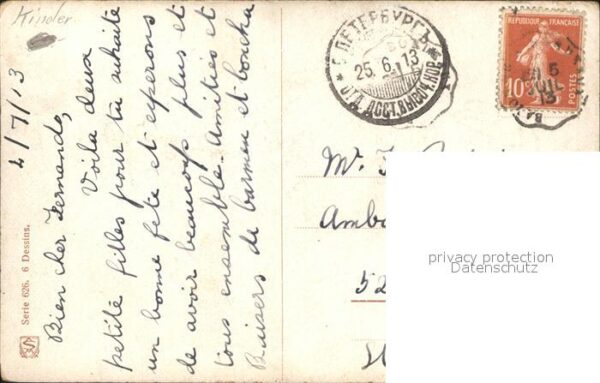 Kinder
2/7/13
Bien cher Fernando,
Voila deux
petite filles pour ta suhaité
un bonne fete et esperons
de avoir beaucoup plus et
tous ensemble. Amitiés et
Baisers de Carmen et Concha
Serie 626. 6 Dessins.
С ПЕТЕРБУРГЪ
25.6.13
ОТД. ДОСТ. ВЫСОЧ. КОР.
RÉPUBLIQUE FRANÇAISE
10c
POSTES
5
13
Mr.
Amba
52
privacy protection
Datenschutz